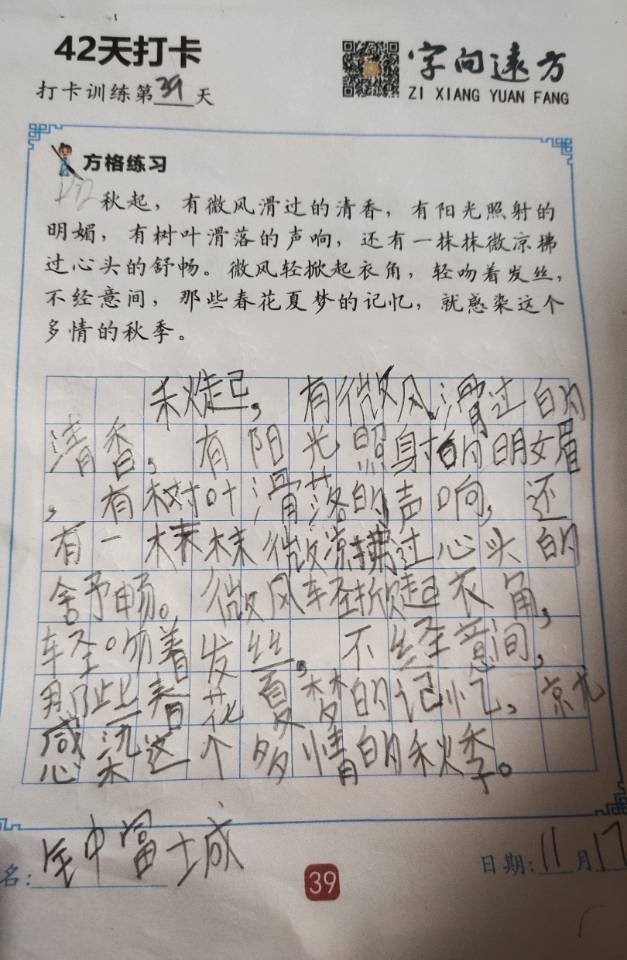 42天打卡
打卡训练第39天
字向远方
ZI XIANG YUAN FANG
方格练习
秋起，有微风滑过的清香，有阳光照射的
明媚，有树叶滑落的声响，还有一抹抹微凉拂
过心头的舒畅。微风轻掀起衣角，轻吻着发丝，
不经意间，那些春花夏梦的记忆，就感染这个
多情的秋季。
秋起，有微风，滑过的
清香，有阳光照射的明媚
，有树叶滑落的声响，还
有一抹抹微凉拂过心头的
舒畅。微风轻掀起衣角，
轻吻着发丝。不经意间，
那些春花夏梦的记忆，就
感染这个多情的秋季。
名：中富士城
39
日期：11月17